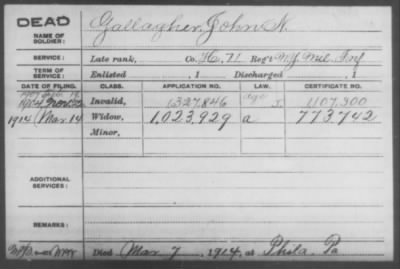 DEAD
NAME OF SOLDIER:
Gallagher, John N.
SERVICE:
Late rank, Co. H, 71 Reg't N.Y. Mil. Inf
TERM OF SERVICE:
Enlisted , 1 Discharged , 1
DATE OF FILING. CLASS. APPLICATION NO. LAW. CERTIFICATE NO.
1904 Invalid, 1327846 1107300
1914 Mar. 14 Widow, 1,023,929 a 773742
Minor,
ADDITIONAL SERVICES:
REMARKS:
Died Mar 7, 1914, at Phila. Pa